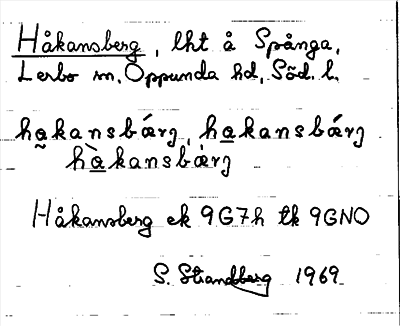 Håkansberg, lht å Spånga,
Lerbo sn, Oppunda hd, Söd. l.
ha̰kansbǽrȷ, ha̲kansbárȷ
hà̲kansbàrȷ
Håkansberg ek 9G7h tk 9GNO
S. Strandberg 1969